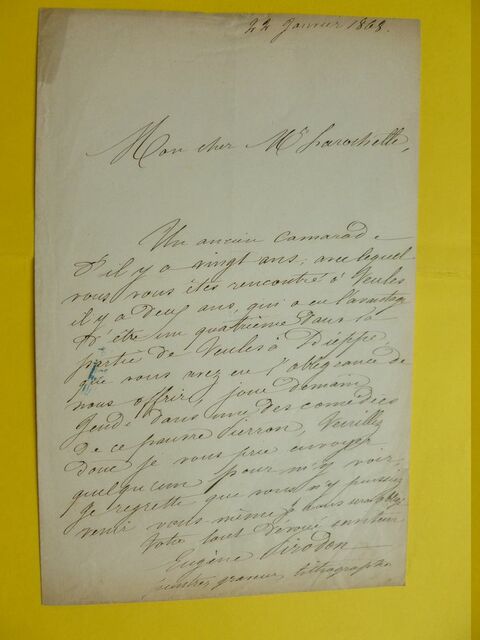 22 Janvier 1868.
Mon cher Mr Larochelle,
Un ancien camarade
d'il y a vingt ans, avec lequel
vous vous êtes rencontré à Veules
il y a deux ans, qui a eu l'avantage
d'être un quatrième dans la
partie de Veules à Dieppe
que vous avez eu l'obligeance de
nous offrir, joue demain
Jeudi dans une des comédies
de ce pauvre Pierron, Veuillez
donc je vous prie envoyer
quelqu'un pour m'y voir,
je regrette que vous n'y puissiez
venir vous même je vous serai obligé
Votre tout dévoué serviteur
Eugène Pirodon
peintre graveur lithographe